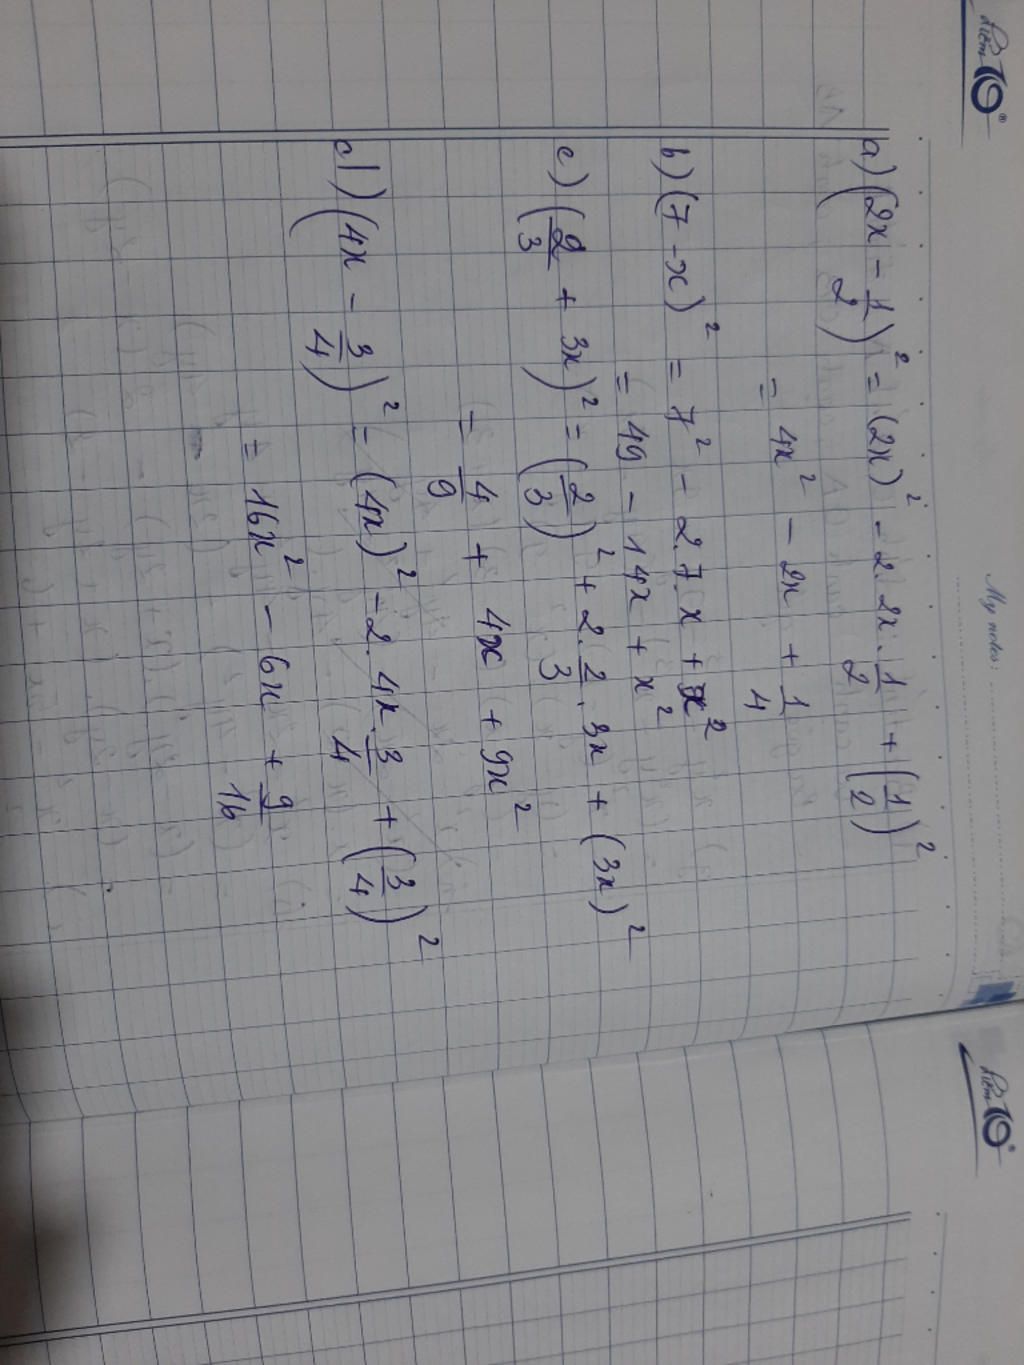 điểm 10
My notes:
a) (2x - 1/2)² = (2x)² - 2.2x.1/2 + (1/2)²
= 4x² - 2x + 1/4
b) (7 - x)² = 7² - 2.7.x + x²
= 49 - 14x + x²
c) (2/3 + 3x)² = (2/3)² + 2.2/3.3x + (3x)²
= 4/9 + 4x + 9x²
d) (4x - 3/4)² = (4x)² - 2.4x.3/4 + (3/4)²
= 16x² - 6x + 9/16
điểm 10